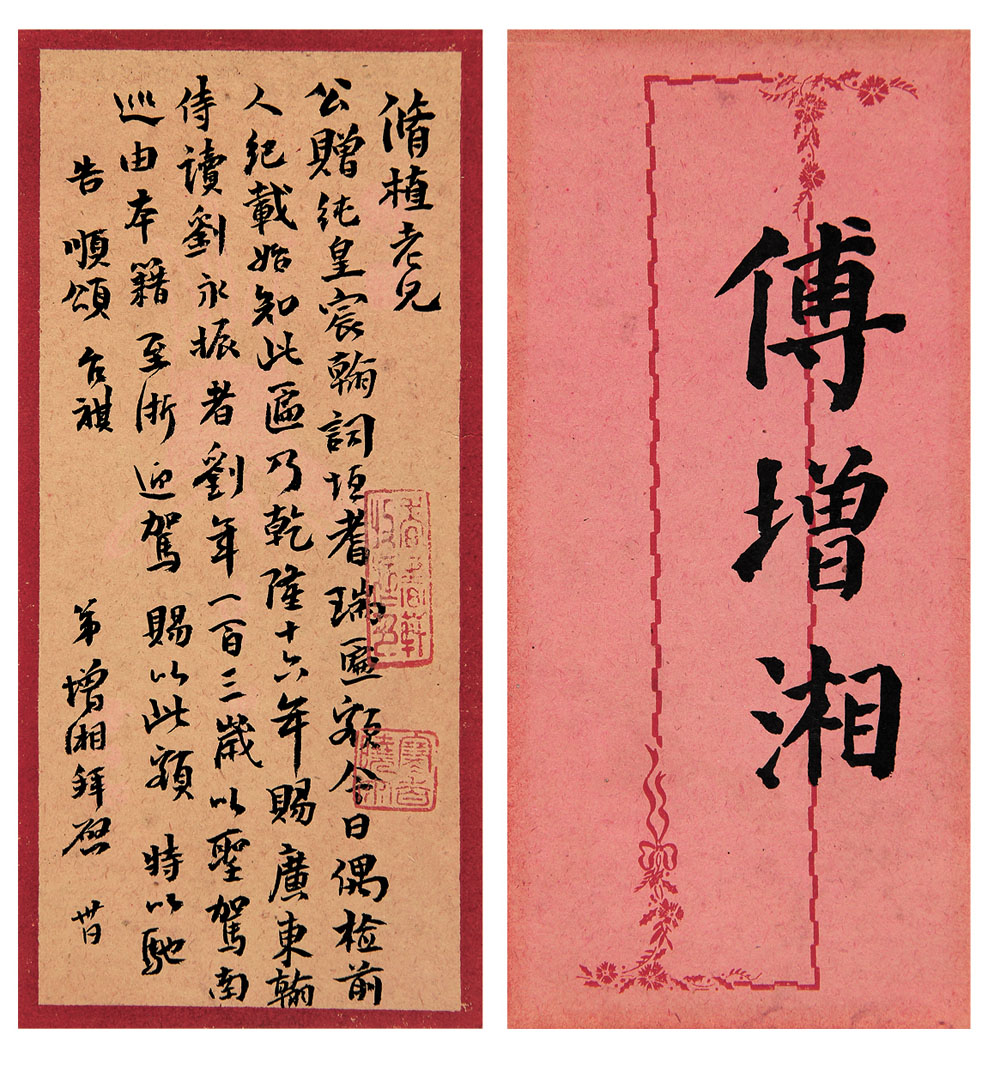 脩植老兄
公贈純皇宸翰詞垣耆瑞匾額今日偶檢前
人紀載始知此匾乃乾隆十六年賜廣東翰
侍讀劉永振者劉年一百三歲以聖駕南
巡由本籍至浙迎駕賜以此額特以馳
告順頌台祺
弟增湘拜啟 卅日
傅增湘